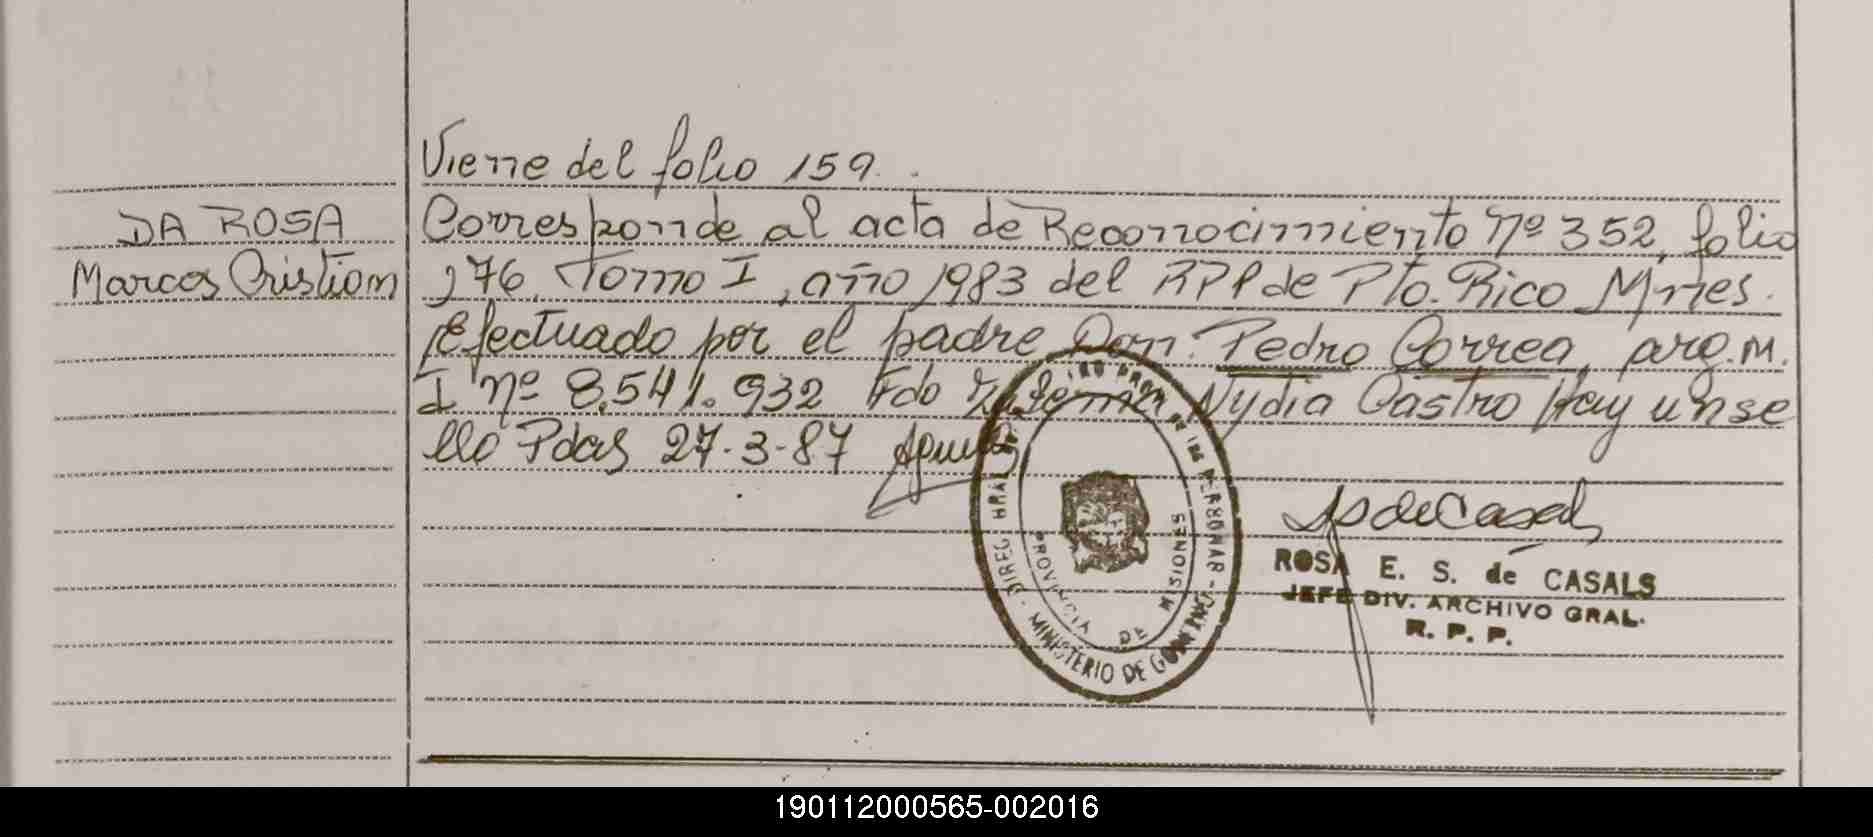 Viene del folio 159.
DA ROSA
Marcos Cristian
Corresponde al acta de Reconocimiento nº 352, folio
176, Tomo I, año 1983 del RPP de Pto. Rico Mnes.
Efectuado por el padre Don. Pedro Correa, arg. M.
I nº 8.541.932 Fdo Nydia Castro Hay un se
llo Pdas 27-3-87
PROVINCIA DE MISIONES
MINISTERIO DE
ROSA E. S. de CASALS
JEFE DIV. ARCHIVO GRAL.
R. P. P.
190112000565-002016